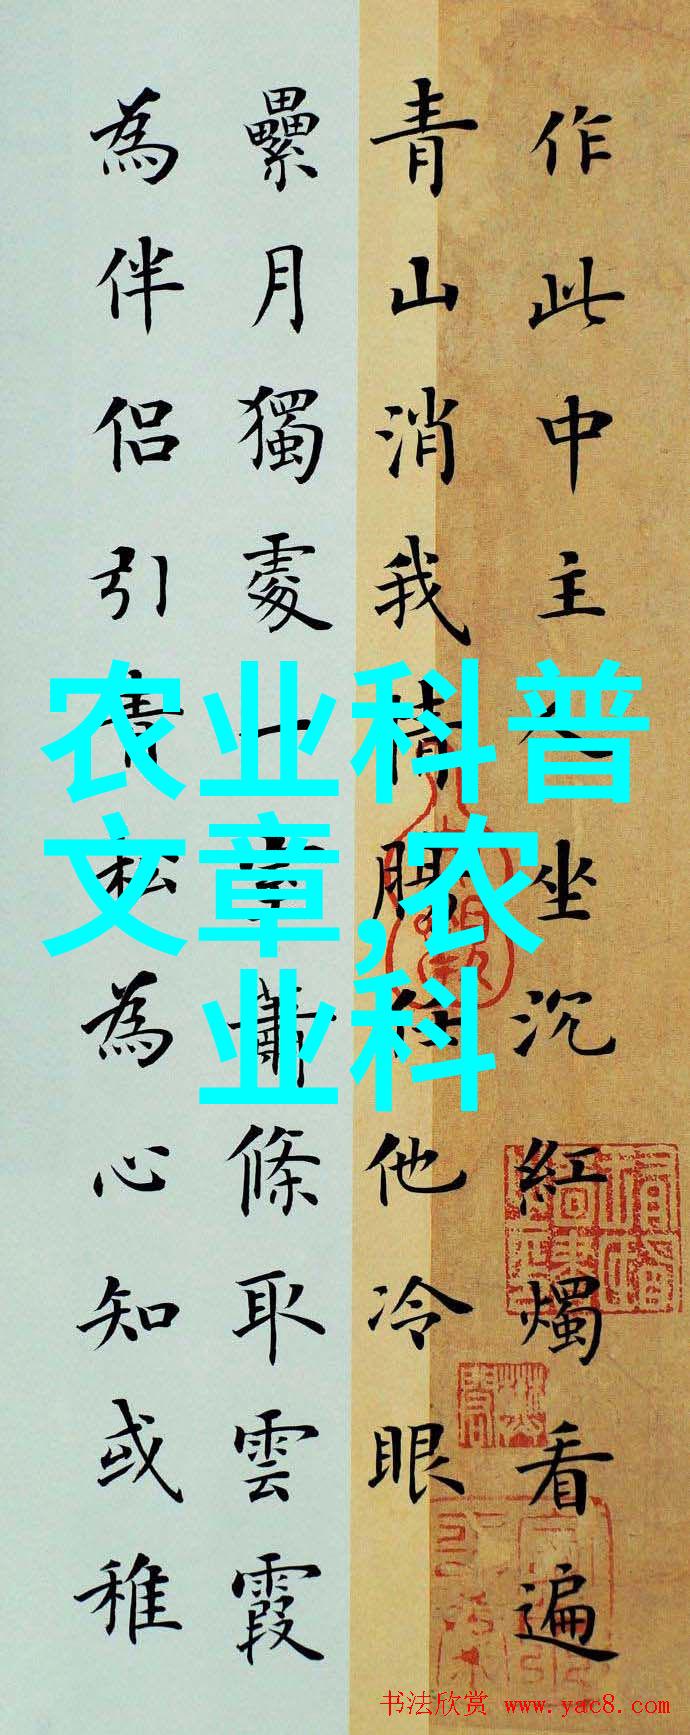 作此中主人坐沉紅燭看遍
青山消我情腸任他冷眼
纍月獨處一室蕭條取雲霞
為伴侶引青松為心知或稚
农业科普
文章,农
业科
书法欣赏 www.yac8.com